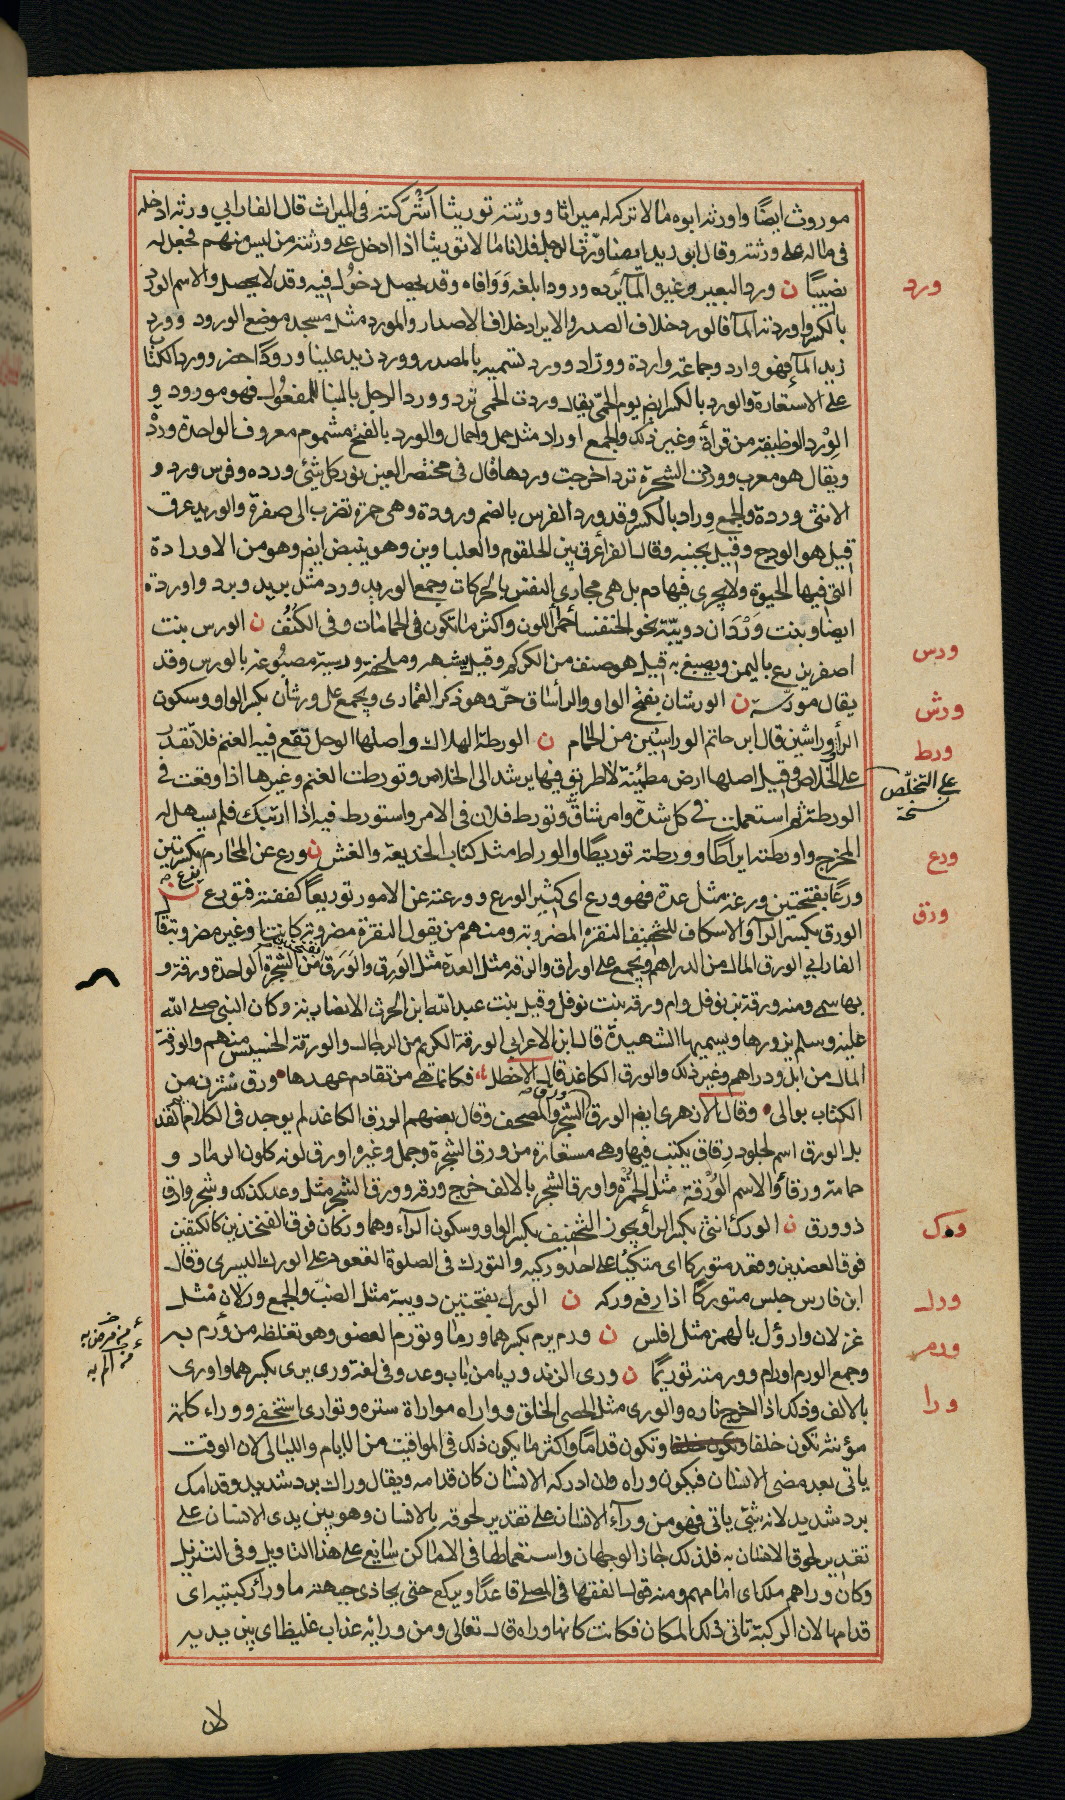 موروث ايضًا واورثه ابوه مالا تركه له ميراثا وورثته توريثا اشركته في الميراث قال الفارابي ورثه ادخله
في ماله على ورثته وقال ابو زيد ايضا ورّث الرجل فلانا مالا توريثا اذا ادخل على ورثته من ليس منهم فجعل له
نصيبًا ن ورد البعير وغيره المآ يَرِده ورودا بلغه وَوَافاه وقد يحصل دخول فيه وقد لا يحصل والاسم الورد
بالكسر واوردته المآ فالورد خلاف الصدر والايراد خلاف الاصدار والمورد مثل مسجد موضع الورود وورد
زيد المآء فهو وارد وجماعة واردة ووراد وورد تسمية بالمصدر وورد زيد علينا ورودًا حضر وورد الكتاب
على الاستعارة والورد بالكسر ايضم يوم الحمّى يقال وردت الحمى ترد وورد الرجل بالبناء للمفعول فهو مورود و
الوِرد الوظيفة من قراة وغير ذلك والجمع اوراد مثل حمل واحمال والورد بالفتح مشموم معروف الواحدة وردة
ويقال هو معرب ووردت الشجرة ترد اخرجت وردها قال في مختصر العين نور كل شيئ ورده وفرس ورد و
الانثى وردة والجمع وِراد بالكسر وقد ورد الفرس بالضم ورودة وهي حمرة تضرب الى صفرة والوريد عرق
قيل هو الودج وقيل بجنبه وقال الفرأ عرق بين الحلقوم والعلباوين وهو ينبض ايضم وهو من الاوردة
التي فيها الحيوة ولا يجري فيها دم بل هي مجاري النفس بالحركات وجمع الوريد ورد مثل بريد وبرد واوردة
ايضا وبنت وَرْدَان دويبّة نحو الخنفسا حمرأ اللون واكثر ما تكون في الحمامات وفي الكُنُف ن الورس نبت
اصفر يزرع باليمن ويصبغ به قيل هو صنف من الكركم وقيل يشبهه وملحفة ورسية مصبُوغة بالورس وقد
يقال مورّسة ن الورشان بفتح الواو والرأ ساق حرّ وهو ذكر القمارى ويجمع على ورشان بكسر الواو وسكون
الرأ وراشين قال ابن حاتم الوراشين من الحمام ن الورطة الهلاك واصلها الوحل تقع فيه الغنم فلا تقدر
على الخلاص وقيل اصلها ارض مطمئنة لا طريق فيها يرشد الى الخلاص وتورطت الغنم وغيرها اذا وقعت في
الورطة ثم استعملت في كل شدة وامر شاقّ وتورط فلان في الامر واستورط فيه اذا ارتبك فلم يسهل له
المخرج واورطته ايراطًا وورطته توريطًا والوراط مثل كتاب الخديعة والغش ن ورع عن المحارم بكسرتين
ورَعًا بفتحتين ورعة مثل عدة فهو ورع اى كثير الورع وورعته عن الامور توريعًا كففته فتورع ن
الورق بكسر الرآ والاسكاف للتخفيف النقرة المضروبة ومنهم من يقول النقرة مضروبة كانت او غير مضروبة قال
الفارابي الورق المال من الدراهم ويجمع على اوراق والرقة مثل العدة مثل الوَرِق والوَرَق من الشجرة الواحدة ورقة و
بها سمي ومنه ورقة بن نوفل وام ورقة بنت نوفل وقيل بنت عبد الله ابن الحرث الانصارية وكان النبي صلى الله
عليه وسلم يزورها ويسميها الشهيدة قال ابن الاعرابي الورقة الكريم من الرجال والورقة الخسيس منهم والورقة
المال من ابل ودراهم وغير ذلك والورق الكاغد قال الاخطل فكانما هي من تقادم عهدها ورق نشرن من
الكتاب بوالى وقال الازهرى ايضم الورق ورق الشجر والمصحف وقال بعضهم الورق الكاغد لم يوجد في الكلام القديم
بل الورق اسم لجلود رِقاق يكتب فيها وهي مستعارة من ورق الشجرة وجمل وغيره اورق لونه كلون الرماد و
حمامة ورقأ والاسم الوُرْقة مثل الحُمْرة واورق الشجر بالالف خرج ورقه وورق الشجر مثل وعد كذلك وشجر وارق
ذو ورق ن الورك انثى بكسر الرأ ويجوز التخفيف بكسر الواو وسكون الرآء وهما وركان فوق الفخذين كالكتفين
فوق العضدين وقعد متوركا اى متكيًا على احد وركيه والتورك في الصلوة القعود على الورك اليسرى وقال
ابن فارس جلس متوركًا اذا رفع وركه ن الورل بفتحتين دويبة مثل الضبّ والجمع ورلان مثل
غزلان وارؤل بالهمز مثل افلس ن ورم يرم بكسرهما ورمًا وتورم العضو وهو تغلظه من وَرَم به
وجمع الورم اورام وورمته توريمًا ن ورى الزند وريا من باب وعد وفي لغة ورى يرى بكسرهما واورى
بالالف وذلك اذا اخرج ناره والورى مثل الحصى الخلق وواراه مواراة ستره وتوارى استخفى ووراء كلمة
مؤنثة تكون خلفا وتكون قدامًا واكثر ما يكون ذلك في المواقيت من الايام والليالى لان الوقت
ياتى بعد مضى الانسان فيكون وراه وان ادركه الانسان كان قدامه ويقال وراك برد شديد وقدامك
برد شديد لانه شئ ياتى فهو من ورآء الانسان على تقدير لحوقه بالانسان وهو بين يدى الانسان على
تقدير لحوق الانسان به فلذلك جاز الوجهان واستعمالها في الاماكن سائغ على هذا التاويل وفي التنزيل
وكان وراهم ملك اى امامهم ومنه قول الفقها في المصلى قاعدًا ويركع حتى يحاذى جبهته ما ورأ ركبتيه اى
قدامها لان الركبة تاتى ذلك المكان فكانت كانها وراه وقال تعالى ومن ورائه عذاب غليظ اى بين يديه
ورد
ورس
ورش
ورط
على التخلص
نسخة
ورع
ورق
ورك
ورل
ورم
ورا
لان